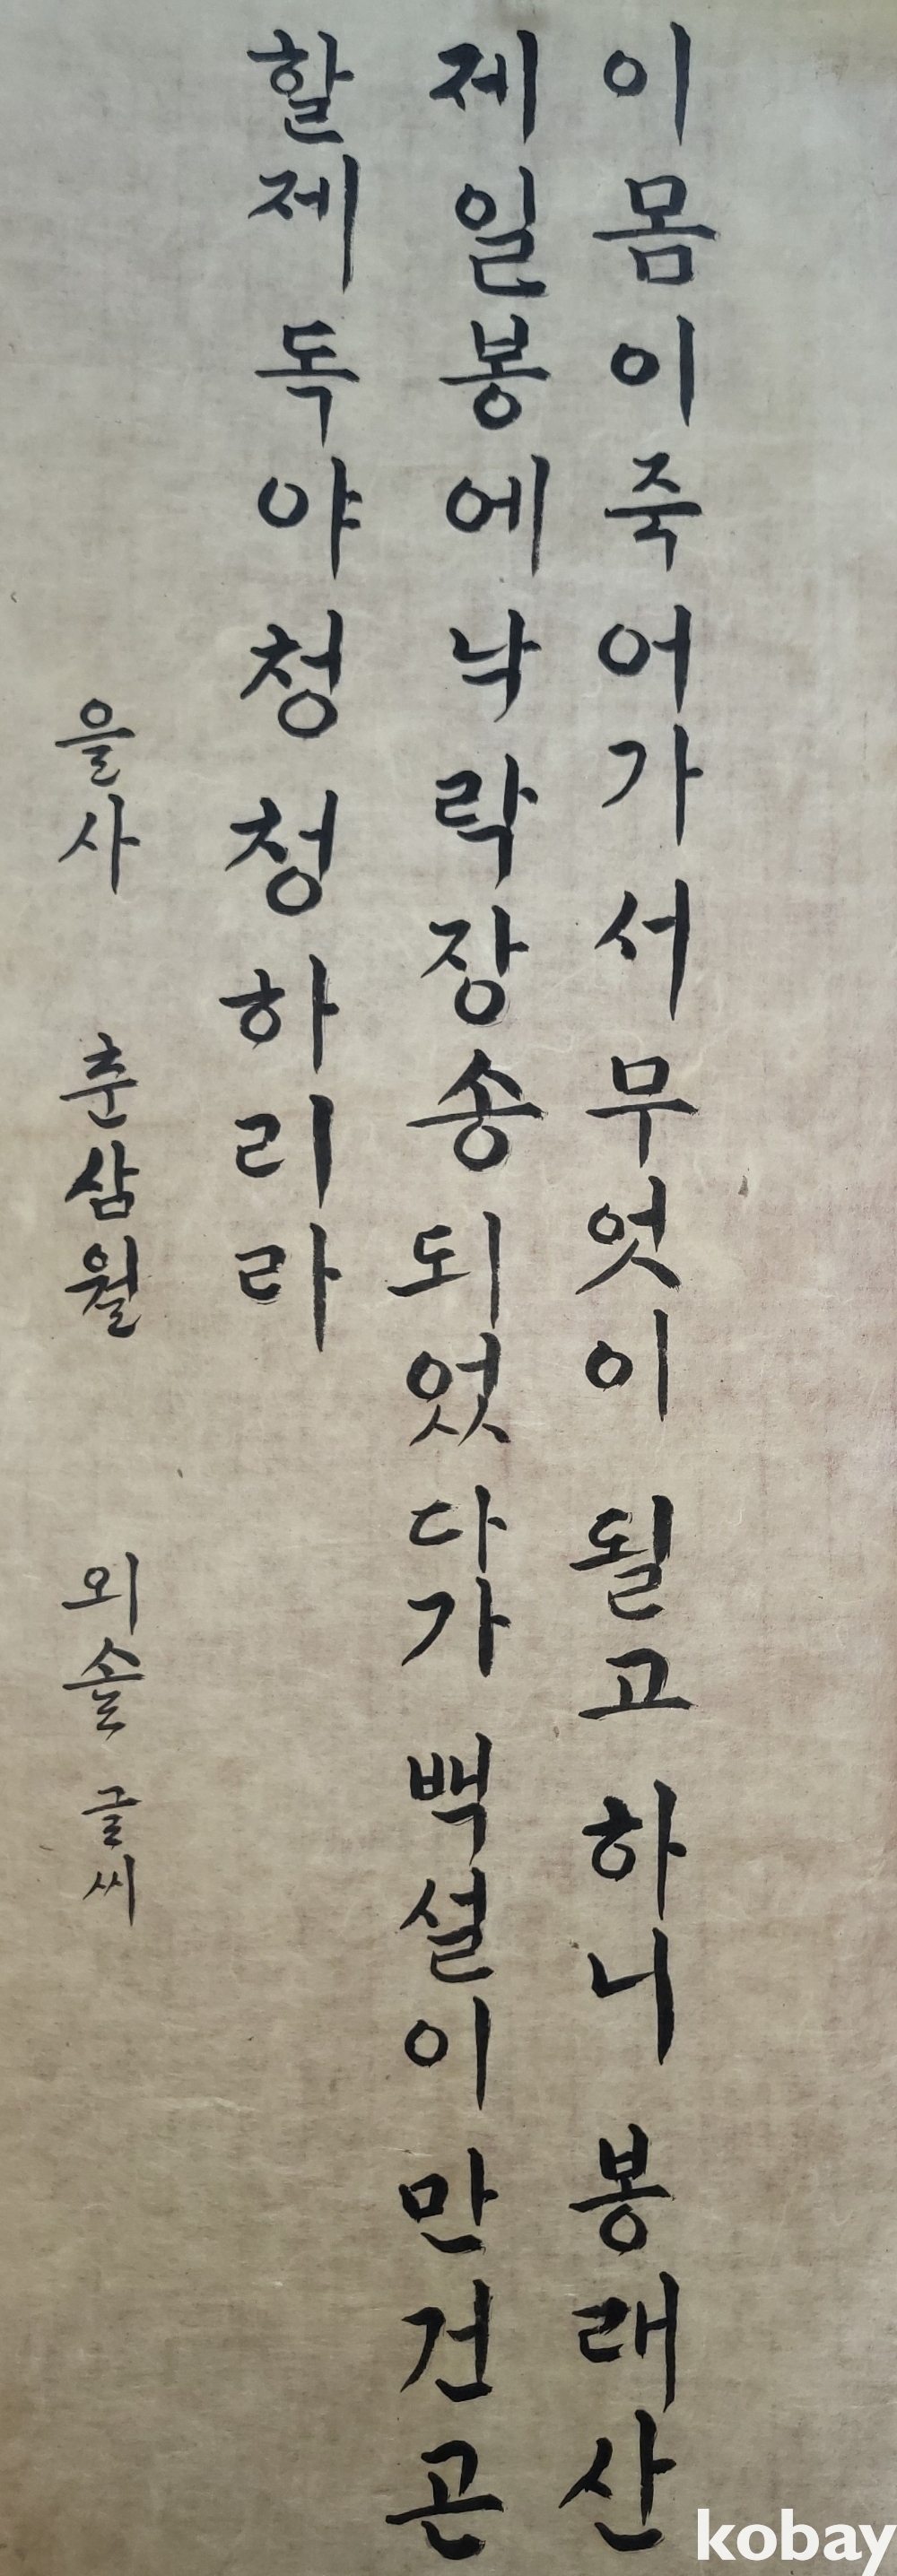 이몸이죽어가서무엇이 될고 하니 봉래산
제일봉에낙락장송되었다가 백설이만건곤
할제독야청청하리라
을사 춘삼월 외솔 글씨
kobay